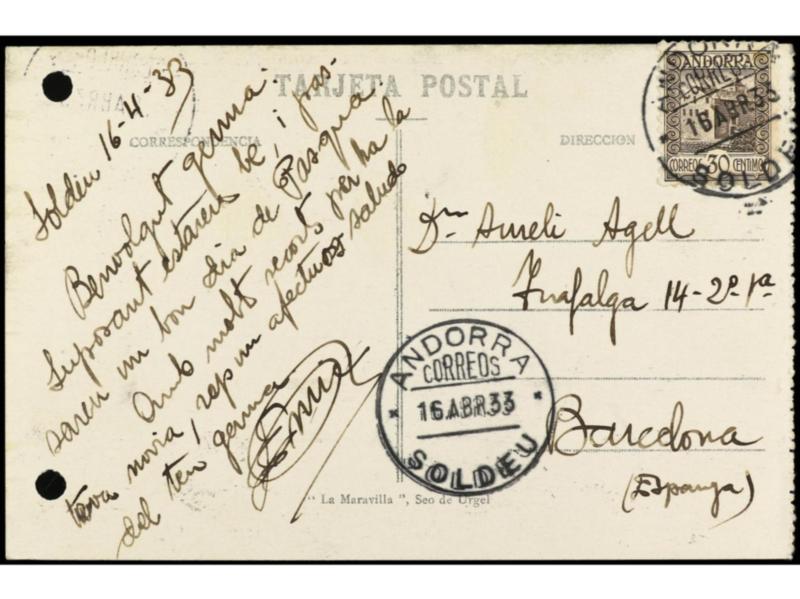 TARJETA POSTAL
CORRESPONDENCIA
DIRECCION
Soldeu 16-4-33
Benvolgut germà:
Suposant estareu bé, i pas-
sareu un bon dia de Pasqua.
Amb molts records per ha la
teva novia, rep un afectuos saludo
del teu germà
ANDORRA
CORREOS 30 CENTIMOS
ANDORRA
CORREOS
16 ABR 33
SOLDEU
Dr. Aureli Agell
Trafalga 14-2º-1ª
Barcelona
(Espanya)
ANDORRA
CORREOS
16 ABR 33
SOLDEU
"La Maravilla", Seo de Urgel